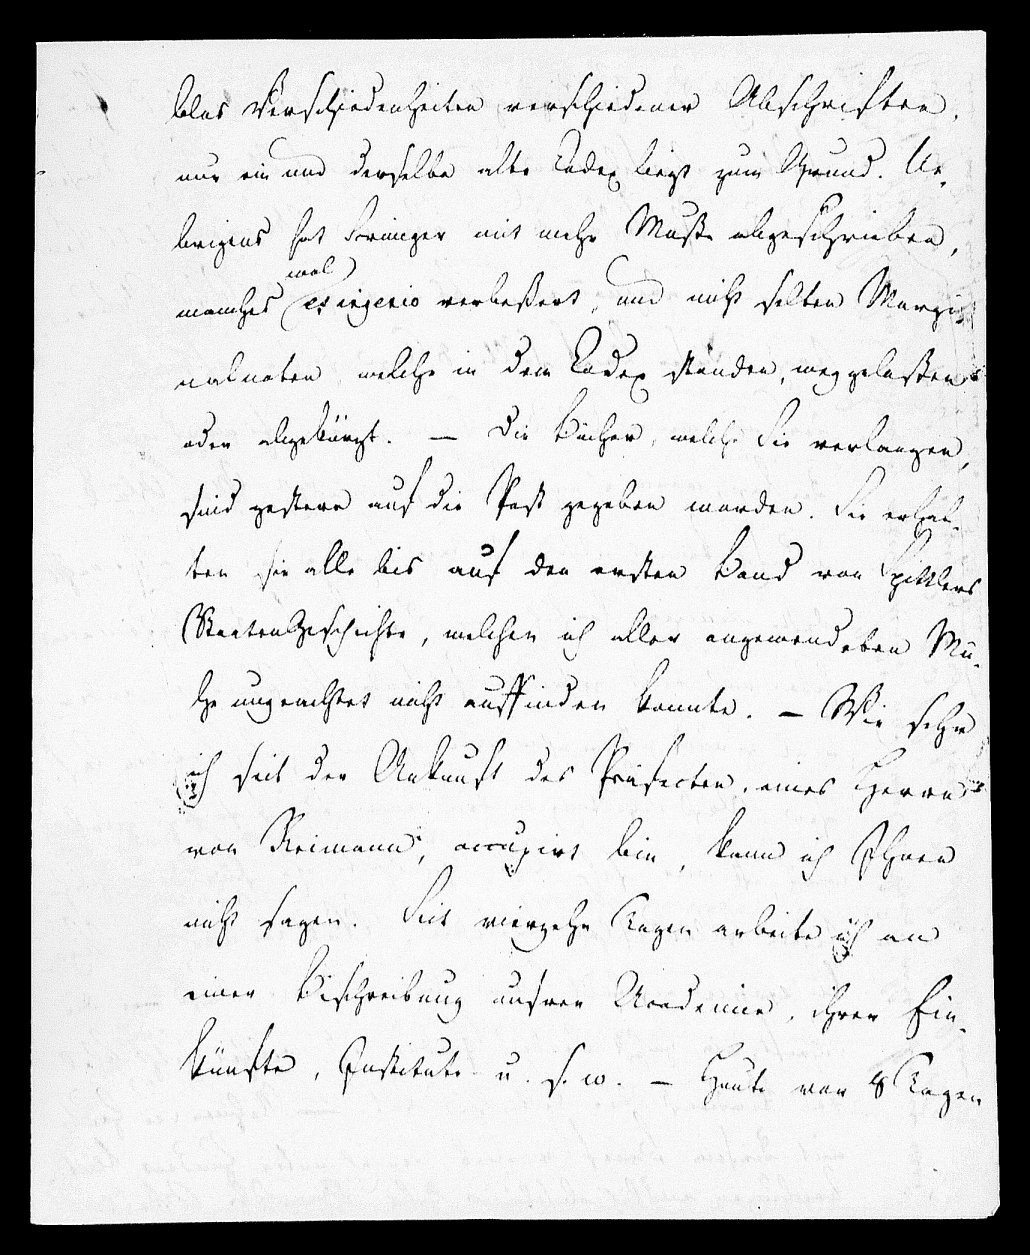 blos Verschiedenheiten verschiedener Abschriften,
nur ein und derselbe alte Codex liegt zum Grund. Ue-
brigens hat Freinger mit mehr Muße abgeschrieben,
wol
manches ex ingenio verbeßert, und nicht selten Margi-
nalnoten, welche in dem Codex standen, weggelaßen
oder abgekürzt. — Die Bücher, welche Sie verlangen,
sind gestern auf die Post gegeben worden. Sie erhal-
ten sie alle bis auf den ersten Band von Spittlers
StaatenGeschichte, welchen ich aller angewendeten Mü-
he ungeachtet nicht auffinden konnte. — Wie sehr
ich seit der Ankunft des Präfecten, eines Herrn
von Reimann, occupirt bin, kann ich Ihnen
nicht sagen. Seit vierzehn Tagen arbeite ich an
einer Beschreibung unsrer Academie, ihrer Ein-
künfte, Institute u. s. w. — Heute vor 8 Tagen